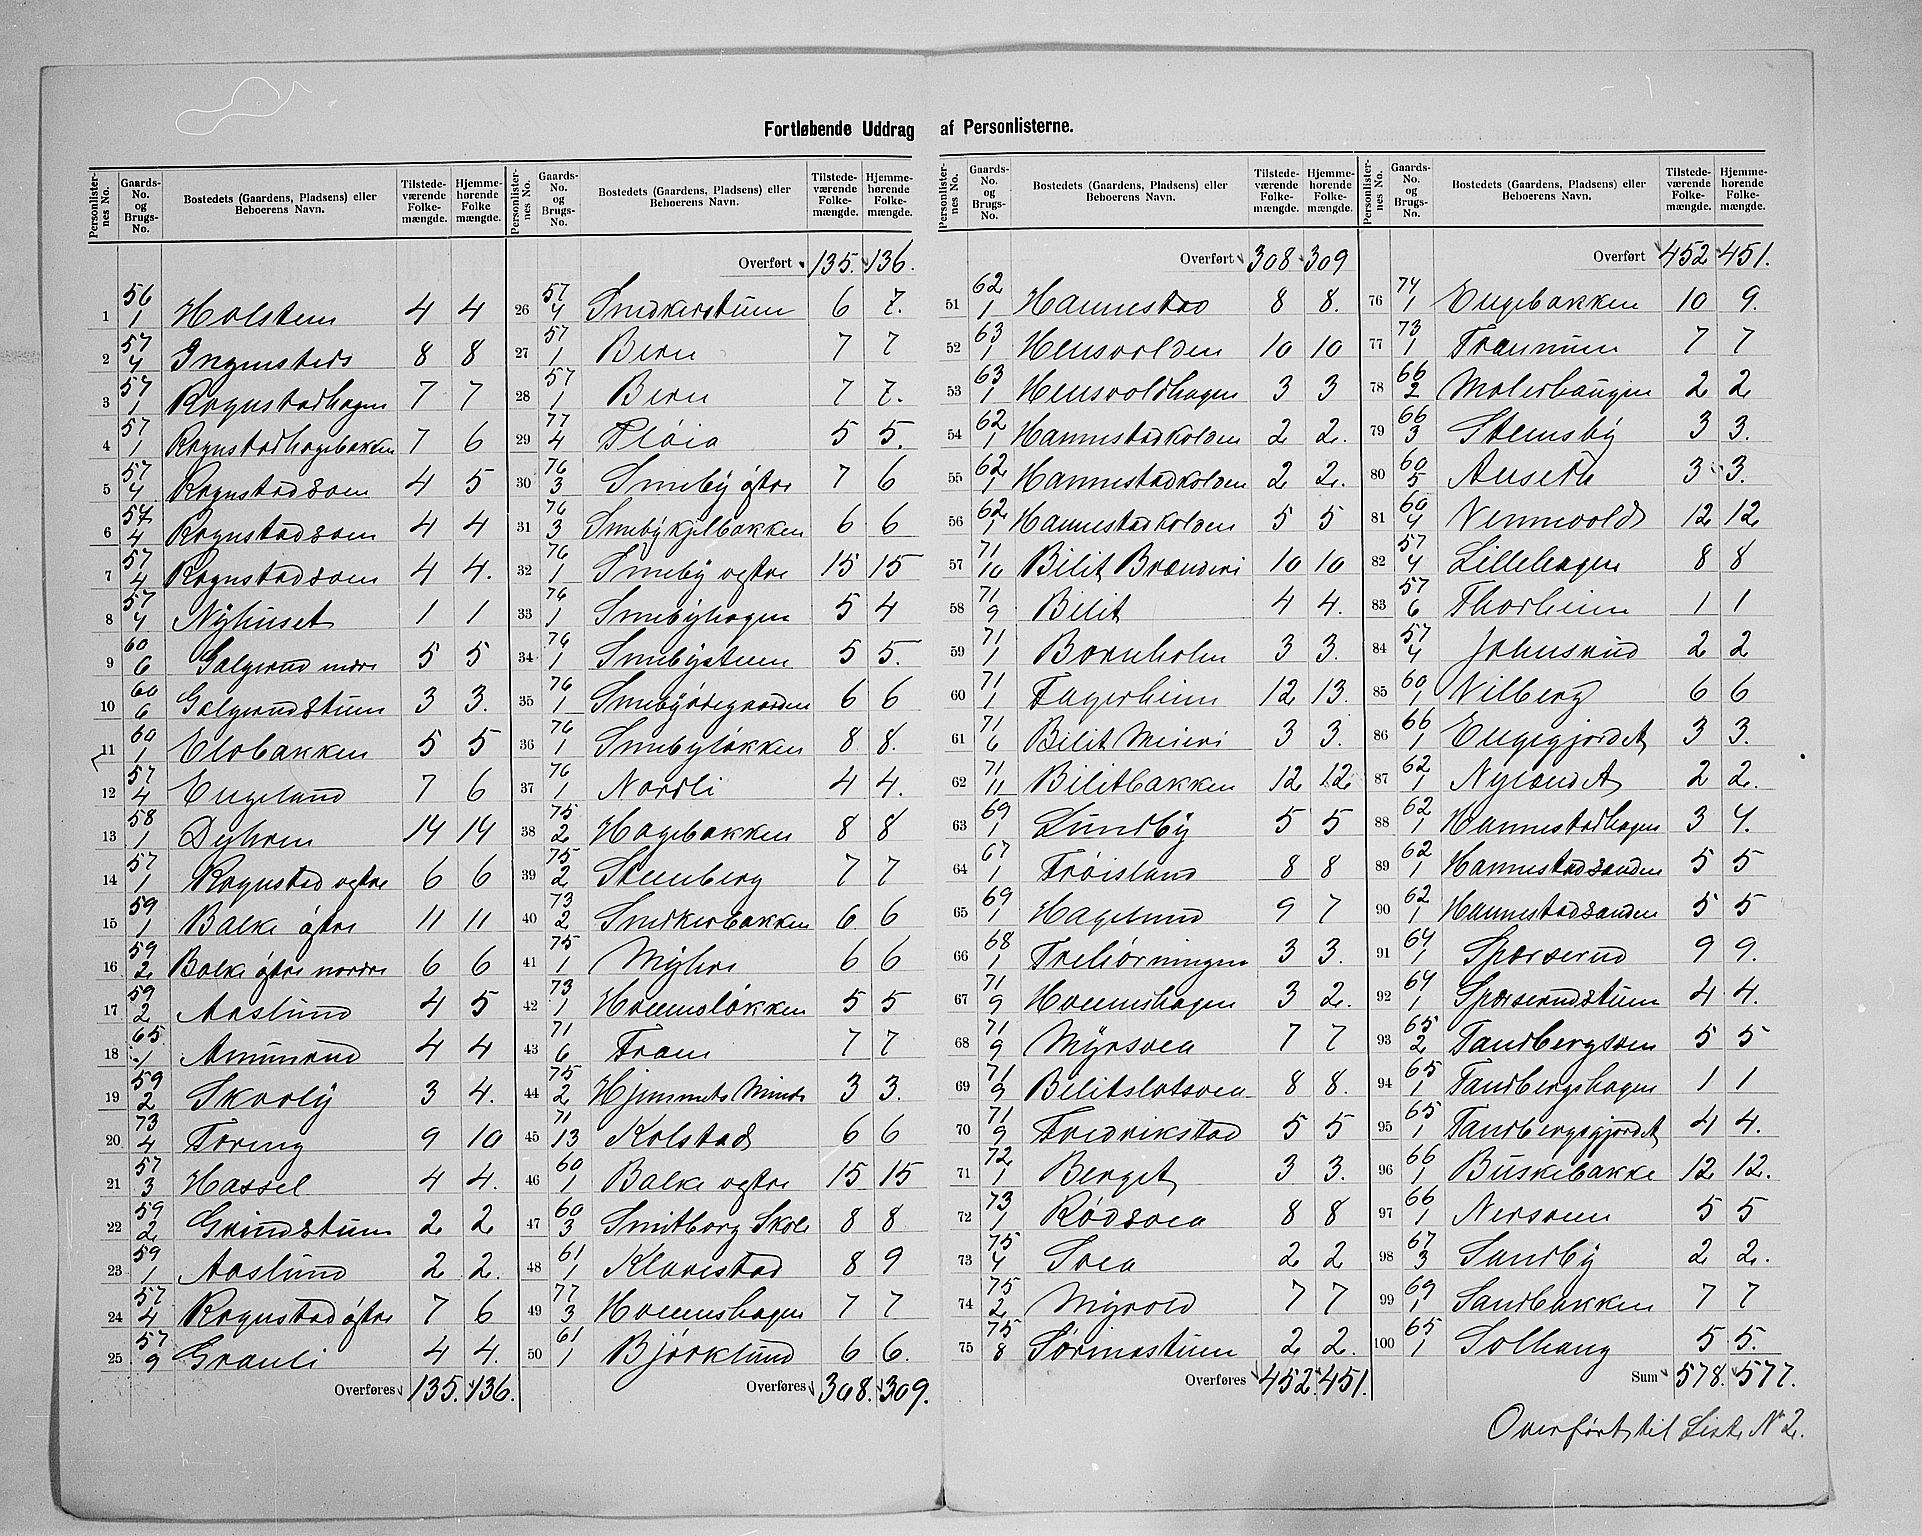 Fortløbende Uddrag af Personlisterne.
Personlister-nes No. | Gaards-No. og Brugs-No. | Bostedets (Gaardens, Pladsens) eller Beboerens Navn. | Tilstede-værende Folke-mængde. | Hjemme-hørende Folke mængde.
1 56/1 Holsten 4 4
2 57/4 Ingensteds 8 8
3 57/1 Rognstadhagen 7 7
4 57/1 Rognstadhagebakken 7 6
5 57/4 Rognstadsven 4 5
6 57/4 Rognstadsven 4 4
7 57/4 Rognstadsven 4 4.
8 57/4 Nyhuset 1 1
9 60/6 Galgerud nedre 5 5
10 60/6 Galgerudstuen 3 3.
11 60/1 Elvbakken 5 5
12 57/4 Engelund 7 6
13 58/1 Dyhren 14 14
14 57/1 Rognstad vestre 6 6
15 59/1 Balke østre 11 11
16 59/2 Balke østre nordre 6 6
17 59/2 Aaslund 4 5
18 65/1 Ammerud 4 4
19 59/2 Skovly 3 4.
20 73/4 Foring 9 10
21 57/3 Hassel 4 4.
22 59/2 Grindstuen 2 2
23 59/1 Aaslund 2 2.
24 57/4 Rognstad østre 7 6
25 57/9 Granli 4 4.
Overføres 135. 136.
Personlister-nes No. | Gaards-No. og Brugs-No. | Bostedets (Gaardens, Pladsens) eller Beboerens Navn. | Tilstede-værende Folke-mængde. | Hjemme-hørende Folke-mængde.
Overført 135. 136.
26 57/4 Snedkerstuen 6 7.
27 57/1 Bern 7 7
28 57/1 Bern 7 7.
29 77/4 Fløia 5 5.
30 76/3 Smeby østre 7 6
31 76/3 Smebykjelbakken 6 6
32 76/1 Smeby vestre 15 15
33 76/1 Smebyhagen 5 4
34 76/1 Smebystuen 5 5.
35 76/1 Smebyødegaarden 6 6
36 76/1 Smebyløkken 8 8.
37 76/1 Nordli 4 4.
38 75/2 Hagebakken 8 8
39 75/2 Stenberg 7 7
40 73/2 Snedkerbakken 6 6
41 75/1 Myhre 6 6
42 73/1 Hoemsløkken 5 5
43 71/6 Fram 7 7
44 75/2 Hjemmets Minde 3 3.
45 71/13 Kolstad 6 6
46 60/1 Balke vestre 15 15
47 60/3 Smitborg Skole 8 8
48 61/1 Klavestad 8 9
49 77/3 Hoemshagen 7 7
50 61/1 Bjørklund 6 6.
Overføres 308. 309.
Personlister-nes No. | Gaards-No. og Brugs-No. | Bostedets (Gaardens, Pladsens) eller Beboerens Navn. | Tilstede-værende Folke-mængde. | Hjemme-hørende Folke-mængde.
Overført 308. 309
51 62/1 Hannestad 8 8.
52 63/1 Hensvolden 10 10
53 63/1 Hensvoldhagen 3 3
54 62/1 Hannestadkolden 2 2.
55 62/1 Hannestadkolden 2 2.
56 62/1 Hannestadkolden 5 5
57 71/10 Bilit Brænderi 10 10
58 71/9 Bilit 4 4.
59 71/1 Bornholm 3 3.
60 71/1 Fagerheim 12 13.
61 71/6 Bilit Meieri 3 3.
62 71/11 Bilitbakken 12 12
63 69/1 Lundby 5 5
64 67/1 Frøisland 8 8
65 69/1 Hagelund 9 7
66 68/1 Trehørningen 3 3.
67 71/9 Hoemshagen 3 2.
68 71/9 Myrsvea 7 7
69 71/9 Bilitslotsvea 8 8.
70 71/9 Fredrikstad 5 5
71 72/1 Berget 3 3.
72 73/1 Rødsvea 8 8
73 75/4 Svea 2 2
74 75/2 Myrvold 7 7
75 75/8 Sørinastuen 2 2.
Overføres 452. 451.
Personlister-nes No. | Gaards-No. og Brugs-No. | Bostedets (Gaardens, Pladsens) eller Beboerens Navn. | Tilstede-værende Folke-mængde. | Hjemme-hørende Folke-mængde.
Overført 452 451.
76 74/1 Engebakken 10 9.
77 73/1 Fraunum 7 7
78 66/2 Malerhaugen 2 2
79 66/3 Stensby 3 3.
80 60/5 Anseth 3 3.
81 60/4 Nennvold 12 12
82 57/4 Lillehagen 8 8
83 57/6 Thorheim 1 1
84 57/4 Johnsrud 2 2
85 60/1 Nilberg 6 6
86 66/1 Engegjordet 3 3.
87 62/1 Nylandet 2 2.
88 62/1 Hannestadhagen 3 4.
89 62/1 Hannestadsanden 5 5
90 62/1 Hannestadsanden 5 5
91 64/1 Sparserud 9 9.
92 64/1 Sparserudstuen 4 4.
93 65/2 Tandbergsven 5 5
94 65/1 Tandbergshagen 1 1
95 65/1 Tandbergsgjordet 4 4.
96 66/1 Buskebakke 12 12.
97 66/1 Nersveen 5 5
98 67/3 Sandby 2 2.
99 69/1 Sandbakken 7 7
100 65/1 Solhaug 5 5.
Sum 578. 577.
Overført til Liste No 2.